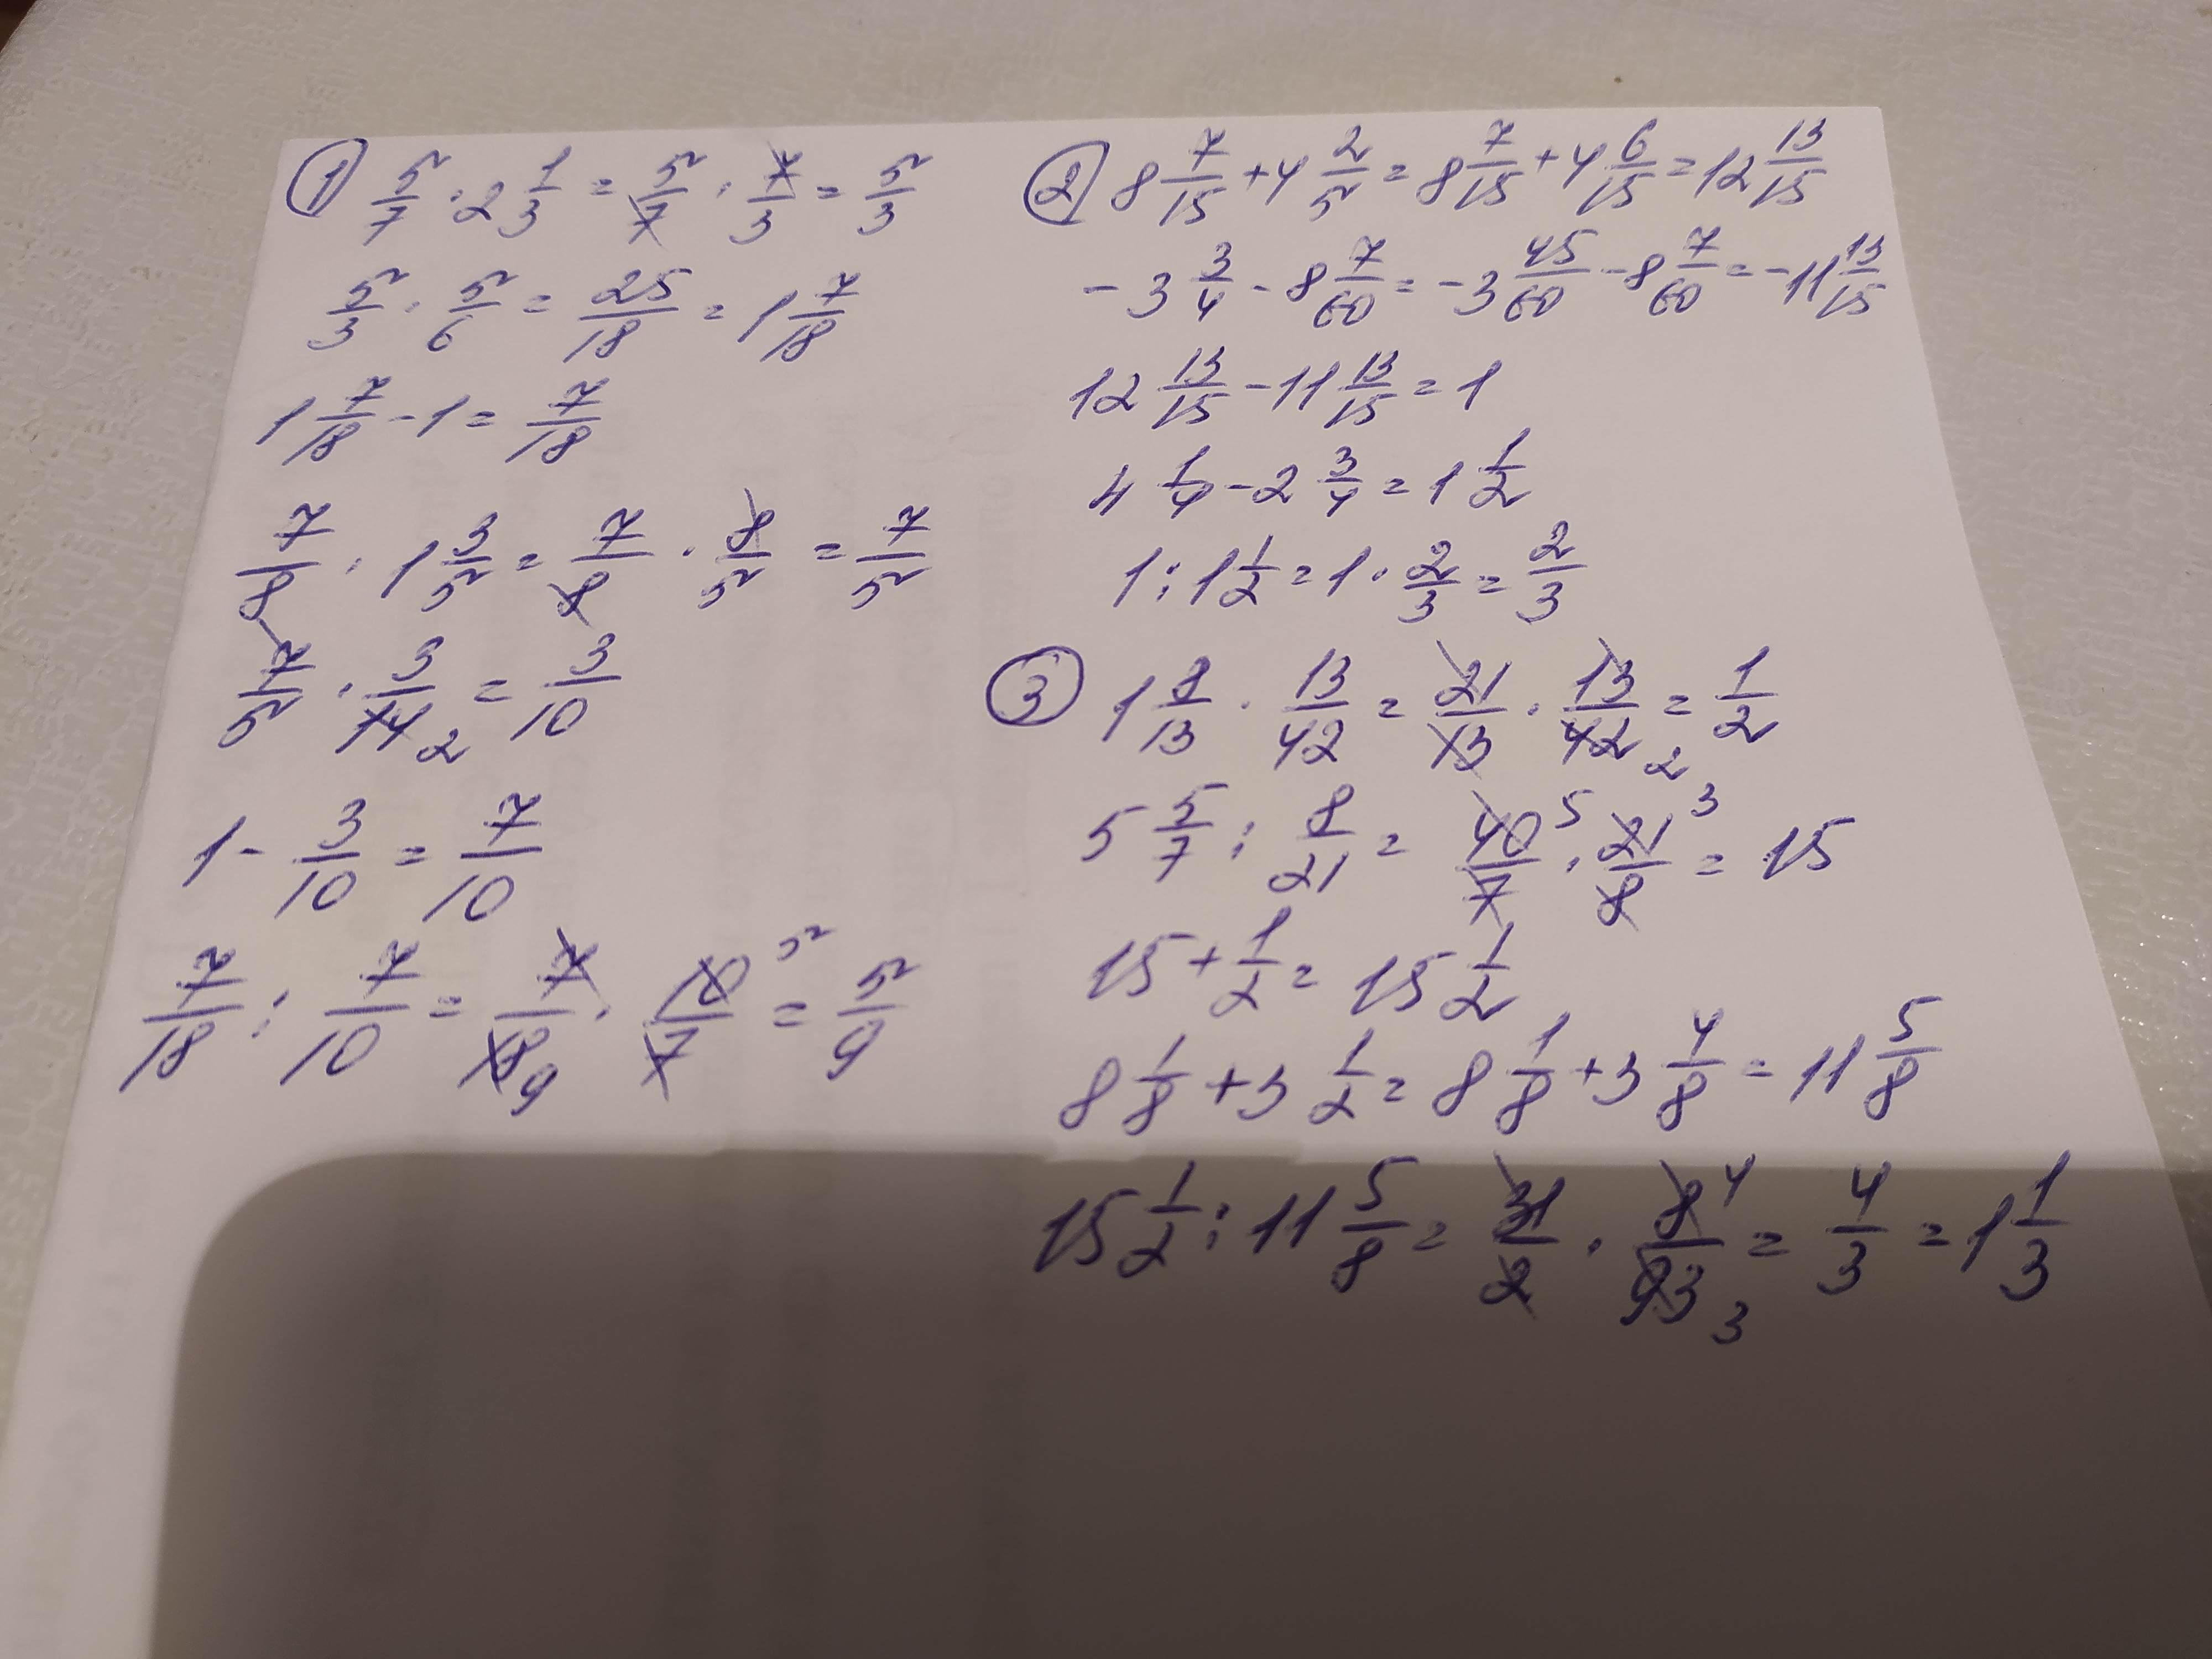 ① 5/7 · 2 1/3 = 5/7 · 7/3 = 5/3
5/3 · 5/6 = 25/18 = 1 7/18
1 7/18 - 1 = 7/18
7/8 · 1 3/5 = 7/8 · 8/5 = 7/5
7/5 · 3/14 2 = 3/10
1 - 3/10 = 7/10
7/18 : 7/10 = 7/18 9 · 10 5/7 = 5/9
② 8 7/15 + 4 2/5 = 8 7/15 + 4 6/15 = 12 13/15
- 3 3/4 - 8 7/60 = - 3 45/60 - 8 7/60 = - 11 13/15
12 13/15 - 11 13/15 = 1
4 1/4 - 2 3/4 = 1 1/2
1 : 1 1/2 = 1 · 2/3 = 2/3
③ 1 8/13 · 13/42 = 21/13 · 13/42 2 = 1/2
5 5/7 : 8/21 = 40 5/7 · 21 3/8 = 15
15 + 1/2 = 15 1/2
8 1/8 + 3 1/2 = 8 1/8 + 3 4/8 = 11 5/8
15 1/2 : 11 5/8 = 31/2 · 8 4/93 3 = 4/3 = 1 1/3